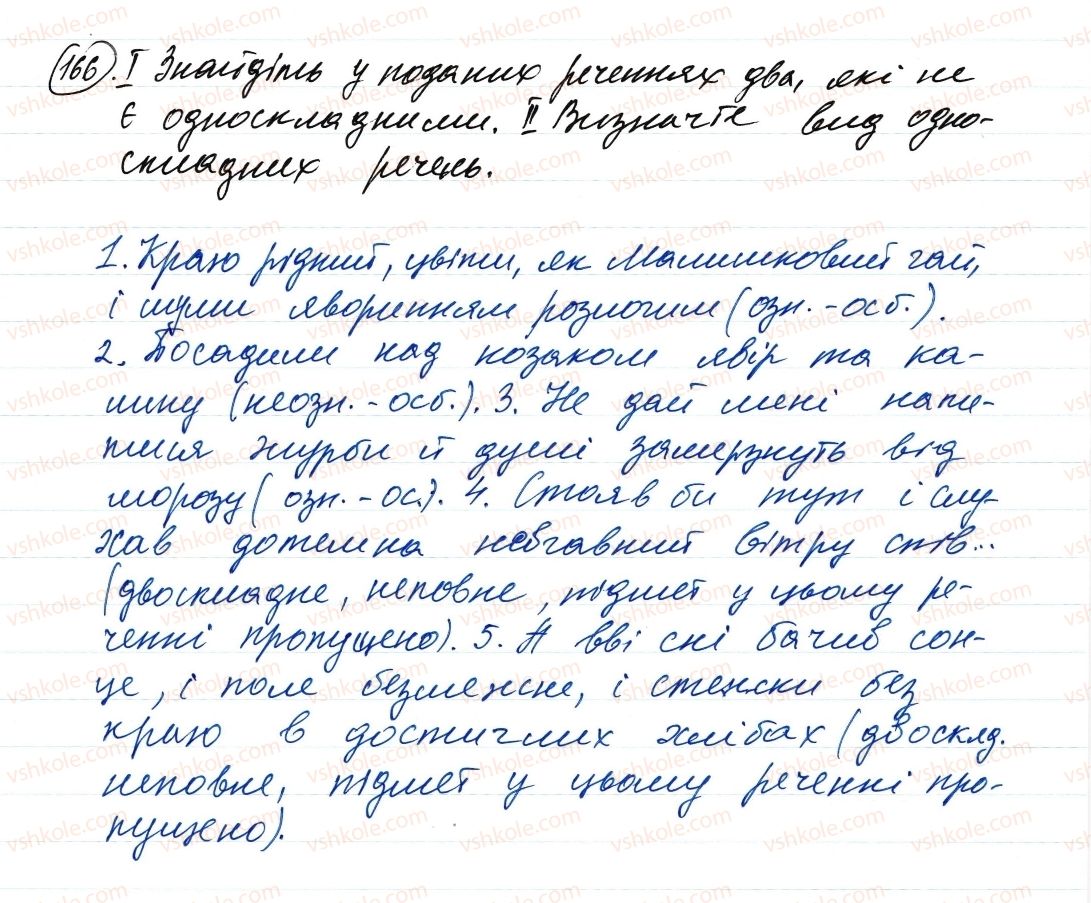 166. I Знайдіть у поданих реченнях два, які не
є односкладними. II Визначте вид одно-
складних речень.
1. Краю рідний, цвіти, як Малишковий гай,
і шуми яворинням розлогим (озн.-особ.).
2. Посадили над козаком явір та ка-
лину (неозн.-осб.). 3. Не дай мені напи-
тися журби й душі замерзнуть від
морозу (озн.-ос.). 4. Стояв би тут і слу-
хав дотемна невгавний вітру спів...
(двоскладне, неповне, підмет у цьому ре-
ченні пропущено). 5. А вві сні бачив сон-
це, і поле безмежне, і стежки без
краю в достиглих хлібах (двосклад.
неповне, підмет у цьому реченні про-
пущено).